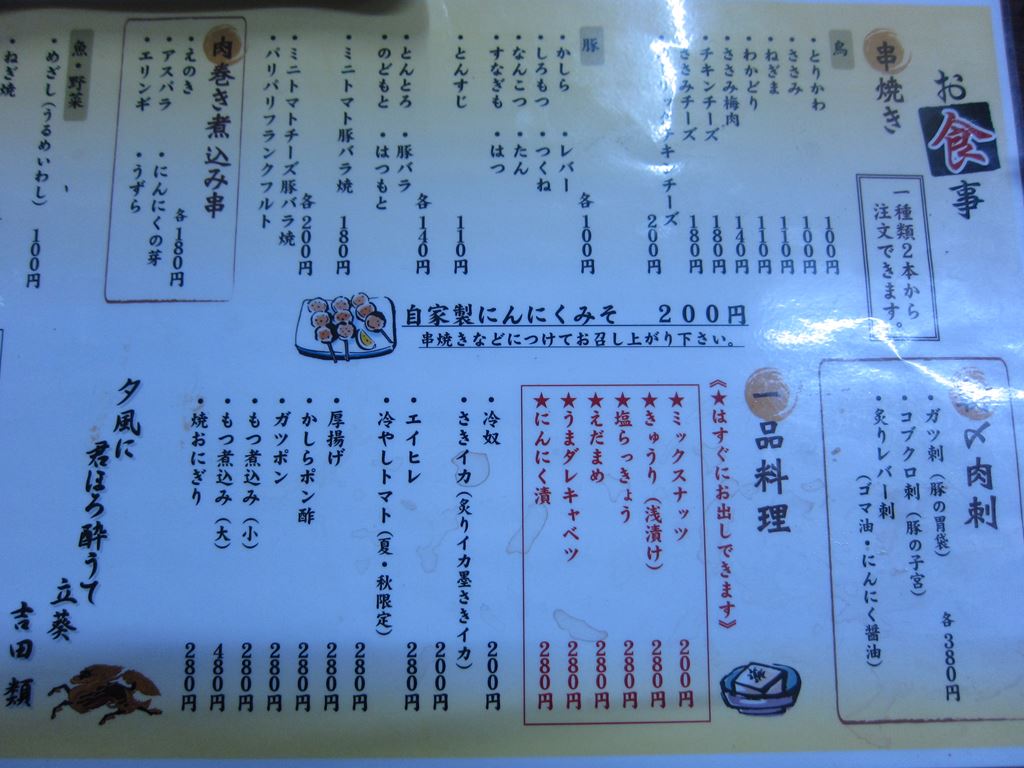 お食事
串焼き
一種類2本から
注文できます。
鳥
・とりかわ 100円
・ささみ 100円
・ねぎま 110円
・わかどり 110円
・ささみ梅肉 140円
・チキンチーズ 180円
・ささみチーズ 180円
チーズ 200円
豚
各100円
・かしら ・レバー
・しろもつ ・つくね
・なんこつ ・たん
・すなぎも ・はつ
・とんすじ 110円
各140円
・とんとろ ・豚バラ
・のどもと ・はつもと
・ミニトマト豚バラ焼 180円
各200円
・ミニトマトチーズ豚バラ焼
・パリパリフランクフルト
肉巻き煮込み串
各180円
・えのき
・アスパラ ・にんにくの芽
・エリンギ ・うずら
魚・野菜
・めざし(うるめいわし) 100円
・ねぎ焼
自家製にんにくみそ 200円
串焼きなどにつけてお召し上がり下さい。
〆肉刺
・ガツ刺(豚の胃袋)
・コブクロ刺(豚の子宮)
・炙りレバー刺
(ゴマ油・にんにく醤油)
各380円
一品料理
《★はすぐにお出しできます》
★ミックスナッツ 200円
★きゅうり(浅漬け) 280円
★塩らっきょう 280円
★えだまめ 280円
★うまダレキャベツ 280円
★にんにく漬 280円
・冷奴 200円
・さきイカ(炙りイカ墨さきイカ) 200円
・エイヒレ 280円
・冷やしトマト(夏・秋限定) 280円
・厚揚げ 280円
・かしらポン酢 280円
・ガツポン 280円
・もつ煮込み(小) 280円
・もつ煮込み(大) 480円
・焼おにぎり 280円
夕風に
君ほろ酔うて
立葵
吉田類